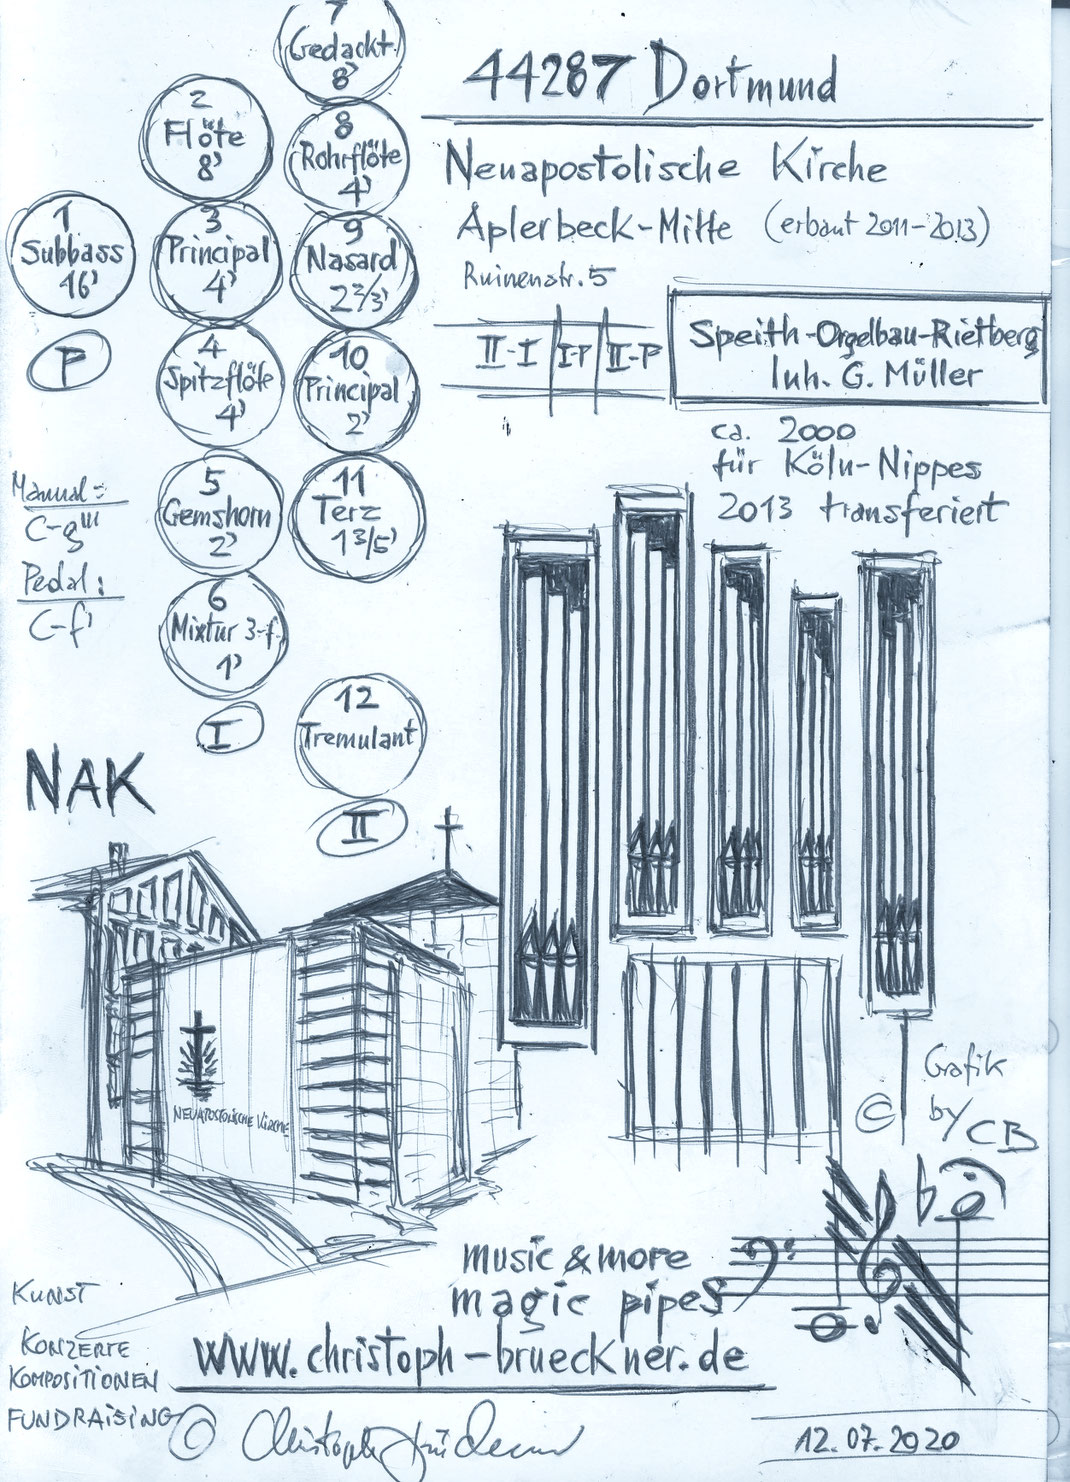 7
Gedackt
8'
2
Flöte
8'
8
Rohrflöte
4'
1
Subbass
16'
P
3
Principal
4'
9
Nasard
2 2/3'
4
Spitzflöte
4'
10
Principal
2'
5
Gemshorn
2'
11
Terz
1 3/5'
6
Mixtur 3-f.
1'
I
12
Tremulant
II
Manual:
C-g'''
Pedal:
C-f'
44287 Dortmund
Neuapostolische Kirche
Aplerbeck-Mitte (erbaut 2011-2013)
Ruinenstr. 5
II-I I-P II-P
Speith-Orgelbau-Rietberg
Inh. G. Müller
ca. 2000
für Köln-Nippes
2013 transferiert
NAK
NEUAPOSTOLISCHE KIRCHE
Grafik
© by CB
music & more
magic pipes
www.christoph-brueckner.de
KUNST
KONZERTE
KOMPOSITIONEN
FUNDRAISING
© Christoph
12.07.2020